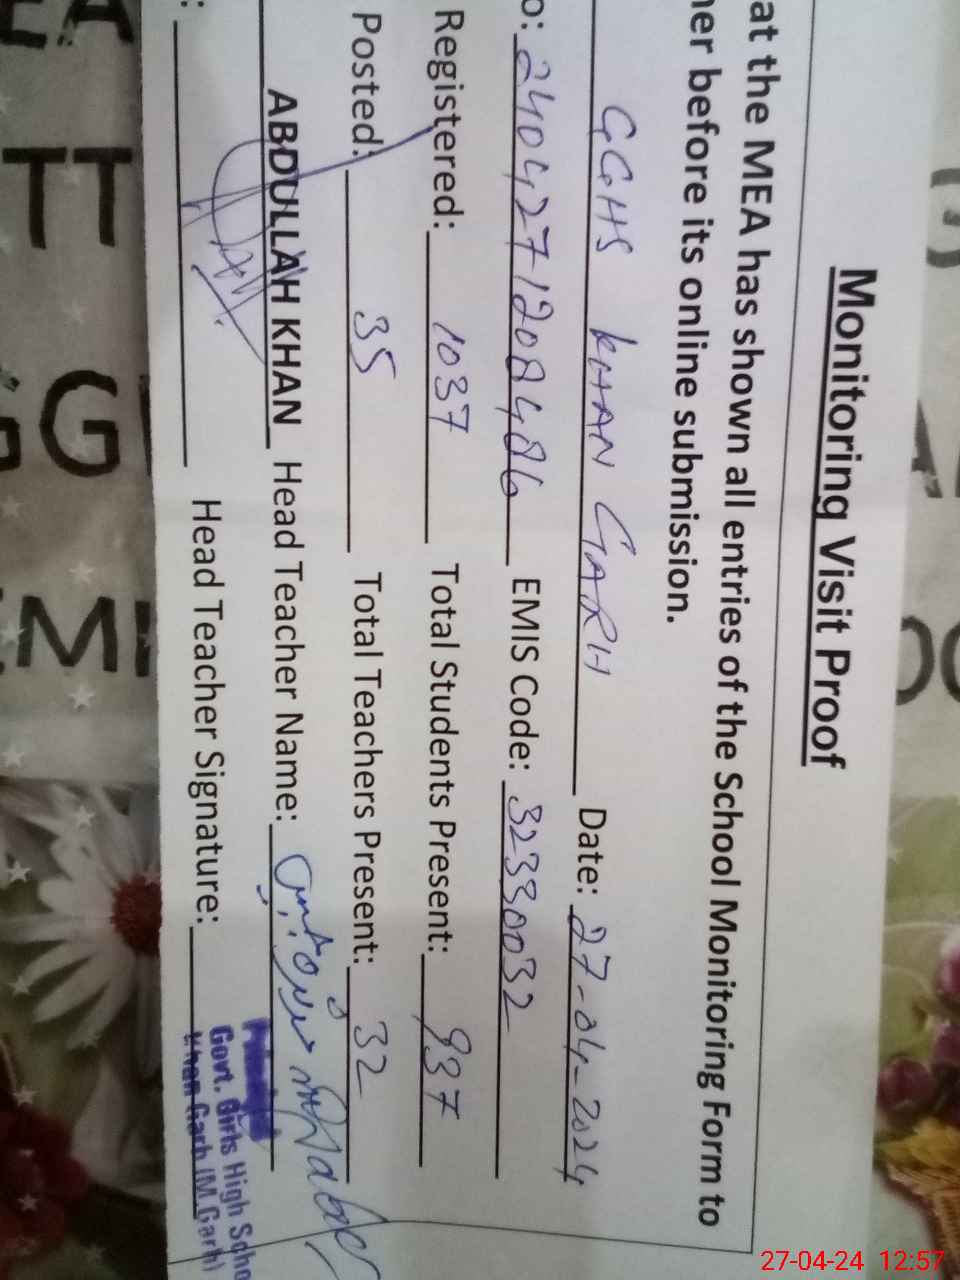 Monitoring Visit Proof
at the MEA has shown all entries of the School Monitoring Form to
her before its online submission.
GGHS KHAN GARH Date: 27-04-2024
o: 24042712084486 EMIS Code: 32330032
Registered: 1037 Total Students Present: 937
Posted: 35 Total Teachers Present: 32
ABDULLAH KHAN Head Teacher Name:
: Head Teacher Signature:
Govt. Girls High Scho
Khan Garh (M.Garh)
27-04-24 12:57